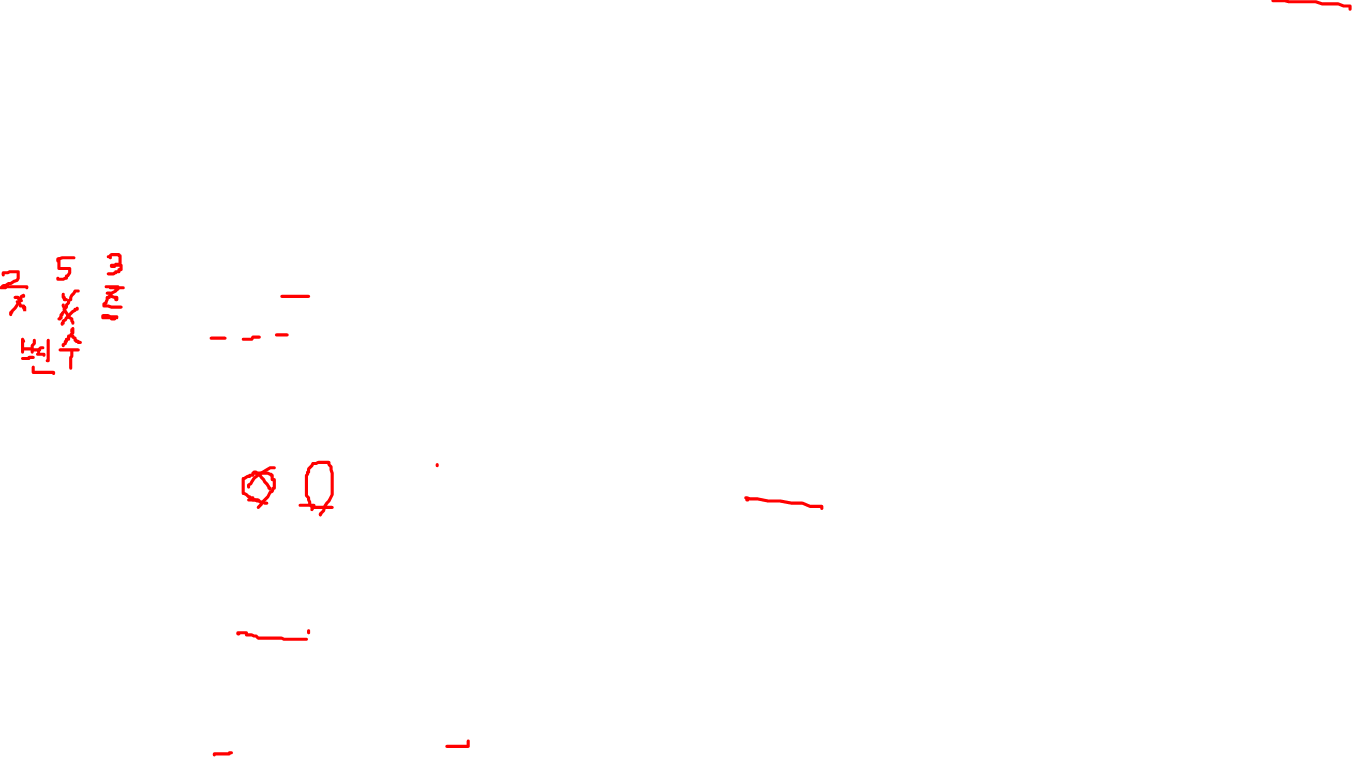 2 5 3
x y z
변수